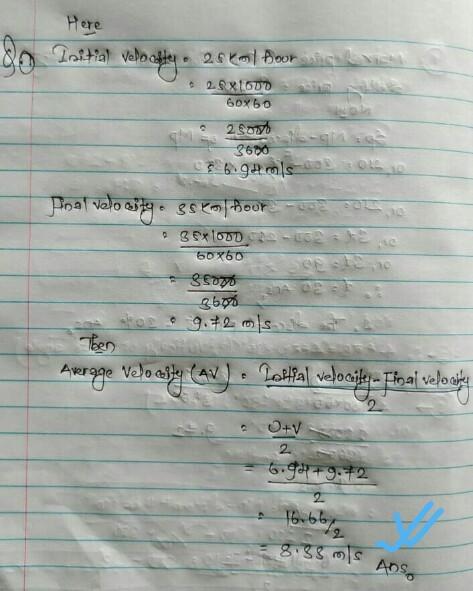 Here
Initial velocity = 25 km/hour
= 25×1000
60×60
= 25000
3600
= 6.94 m/s
Final velocity = 35 km/hour
= 35×1000
60×60
= 35000
3600
= 9.72 m/s
Then
Average velocity (AV) = Initial velocity - Final velocity
2
= U+V
2
= 6.94+9.72
2
= 16.66/2
= 8.33 m/s Ans.